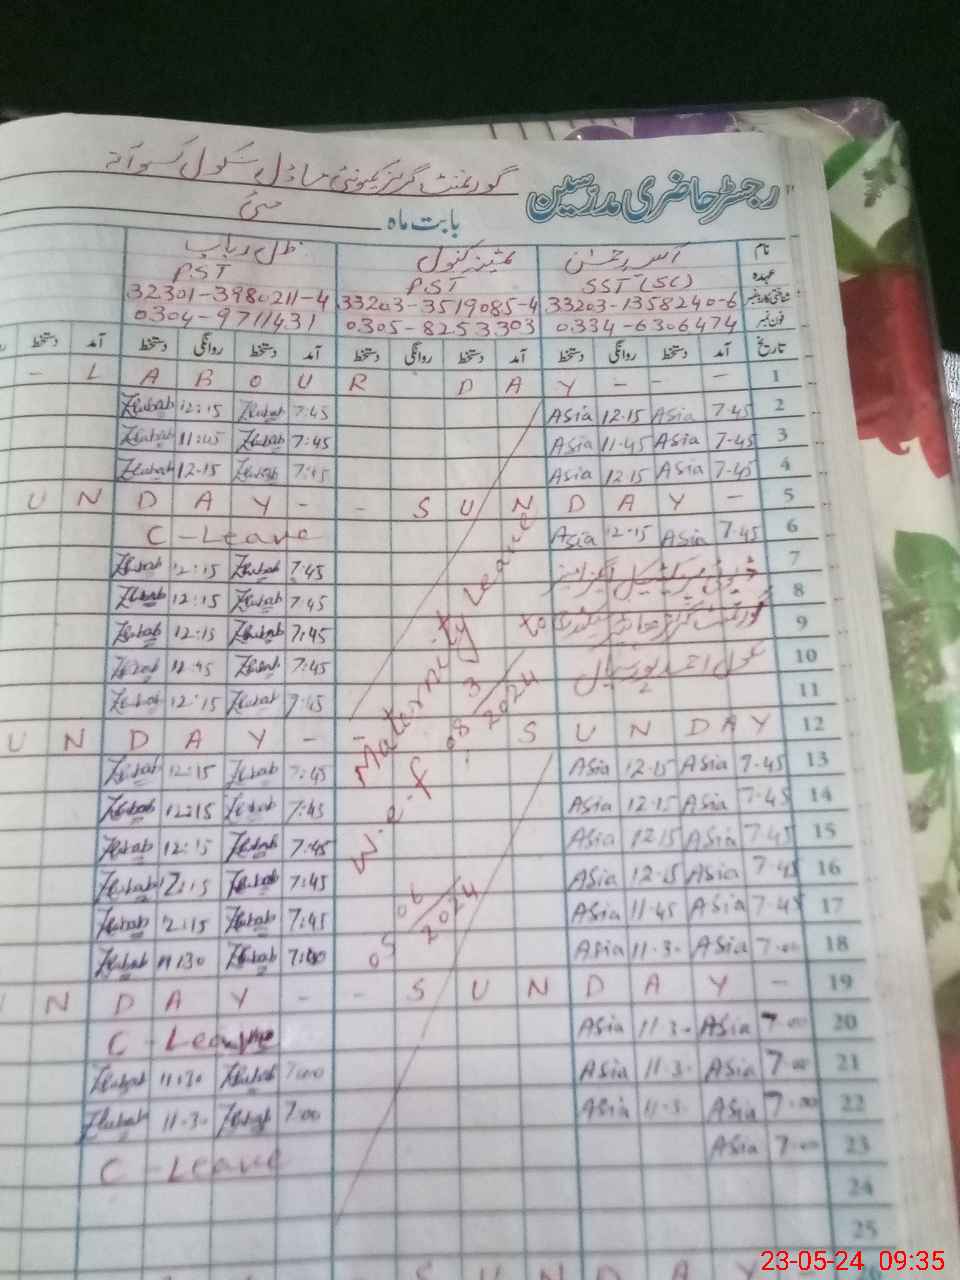 رجسٹر حاضری مدرسین گورنمنٹ گرلز کمیونٹی ماڈل سکول
بابت ماہ مئی
نام ثمینہ کنول ظل رباب
عہدہ SST (SC) PST PST
شناختی کارڈ نمبر 33203-1358240-6 33203-3519085-4 32301-3980211-4
فون نمبر 0334-6306474 0305-8253303 0304-9711431
تاریخ آمد دستخط روانگی دستخط آمد دستخط روانگی دستخط آمد دستخط روانگی دستخط آمد دستخط
- L A B O U R D A Y - - - 1
12:15 7:45 Asia 12.15 Asia 7-45 2
11:45 7:45 Asia 11-45 Asia 7-45 3
12-15 7:45 Asia 12.15 Asia 7-45 4
U N D A Y - - S U N D A Y - 5
C - Leave Asia 12-15 Asia 7.45 6
12:15 7:45 7
12:15 7:45 8
12:15 7:45 9
7:45 10
12:15 7:45 11
U N D A Y - - S U N D A Y 12
12:15 7:45 Asia 12.15 Asia 7.45 13
12:15 7:45 Asia 12.15 Asia 7.45 14
12:15 7:45 Asia 12.15 Asia 7.45 15
12:15 7:45 Asia 12.15 Asia 7.45 16
7:45 Asia 11.45 Asia 7-45 17
11:30 7:00 Asia 11.30 Asia 7.00 18
N D A Y - - S U N D A Y - 19
C - Leave Asia 11.30 Asia 7.00 20
11:30 7:00 Asia 11.30 Asia 7.00 21
11.30 7:00 Asia 11.30 Asia 7.00 22
C - Leave Asia 7.00 23
24
25
S U N D A Y
Maternity Leave
w.e.f 08/3/2024 to
05/06/2024
23-05-24 09:35